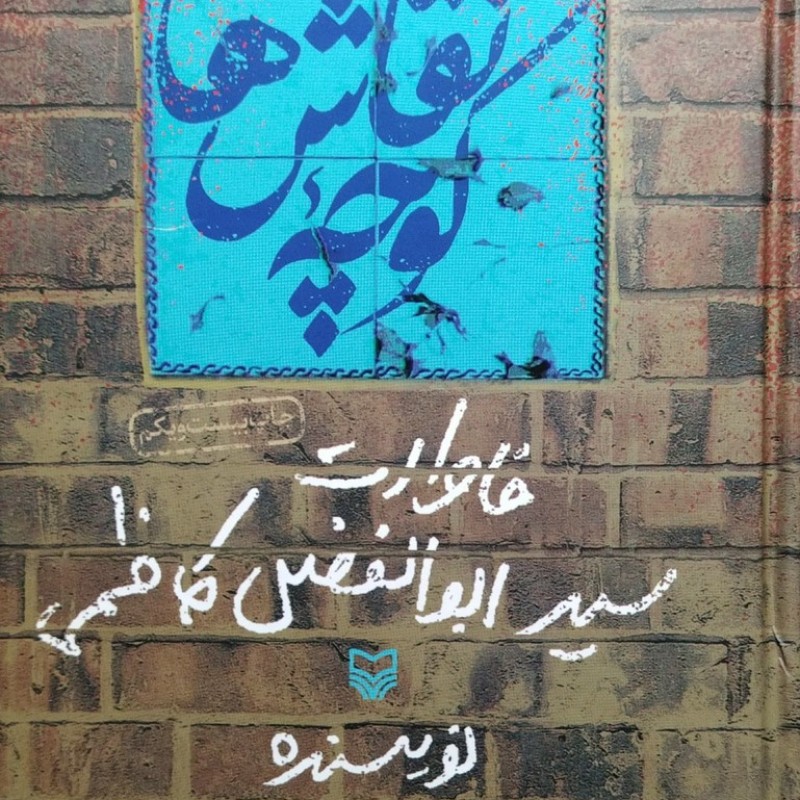 کوچه نقاش‌ها
چاپ بیست و یکم
خاطرات
سید ابوالفضل کاظمی
نویسنده